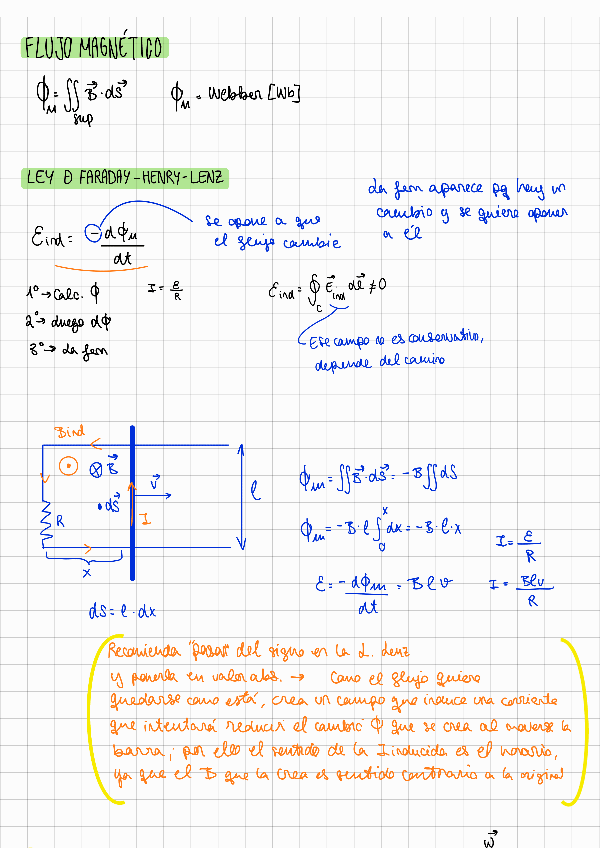 FLUJO MAGNÉTICO
ϕ_M = ∬_sup B⃗ · dS⃗    ϕ_M = Webber [Wb]
LEY D FARADAY-HENRY-LENZ
La fem aparece pq hay un
cambio y se quiere oponer
a él
se opone a que
el flujo cambie
Ɛind = - dϕ_M / dt
1º → Calc. ϕ    I = ε/R
2º → Luego dϕ
3º → La fem
Ɛind = ∮_C E⃗ind · dl⃗ ≠ 0
Ese campo no es conservativo,
depende del camino
Bind
B⃗
dS⃗
V⃗
I
R
l
x
dS = l · dx
ϕ_m = ∬ B⃗ · dS⃗ = -B ∬ dS
ϕ_m = -B · l ∫_0^x dx = -B · l · x
I = ε/R
ε = -dϕ_m / dt = B l v    I = Blv / R
Recomienda "pasar" del signo en la L. Lenz
y ponerla en valor abs. → Como el flujo quiere
quedarse como está, crea un campo que induce una corriente
que intentará reducir el cambio ϕ que se crea al moverse la
barra; por ello el sentido de la I inducida es el horario,
ya que el B que la crea es sentido contrario a la original
w⃗